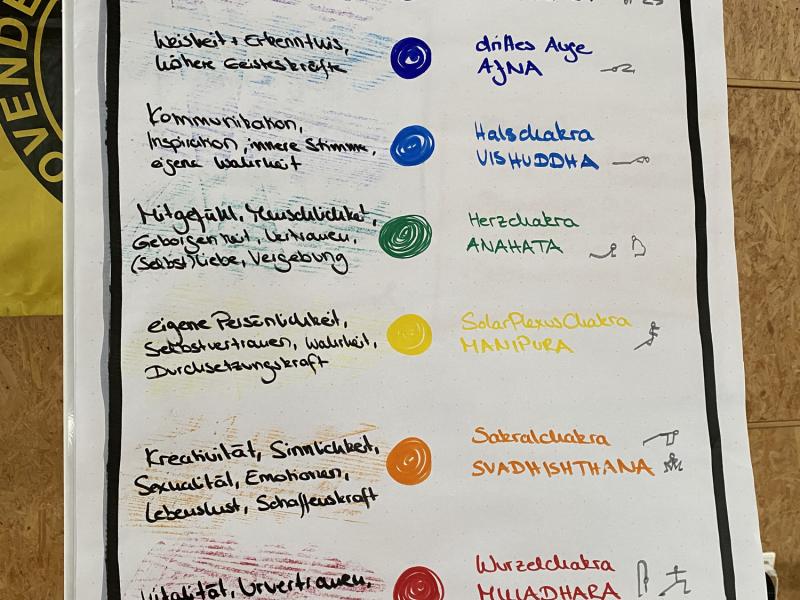 OVENDE
Weisheit + Erkenntnis,
höhere Geisteskräfte
drittes Auge
AJNA
Kommunikation,
Inspiration, innere Stimme,
eigene Wahrheit
Halschakra
VISHUDDHA
Mitgefühl, Menschlichkeit,
Geborgenheit, Vertrauen,
(Selbst)liebe, Vergebung
Herzchakra
ANAHATA
eigene Persönlichkeit,
Selbstvertrauen, Wahrheit,
Durchsetzungskraft
SolarPlexusChakra
MANIPURA
Kreativität, Sinnlichkeit,
Sexualität, Emotionen,
Lebenslust, Schaffenskraft
Sakralchakra
SVADHISHTHANA
Vitalität, Urvertrauen,
Wurzelchakra
MULADHARA